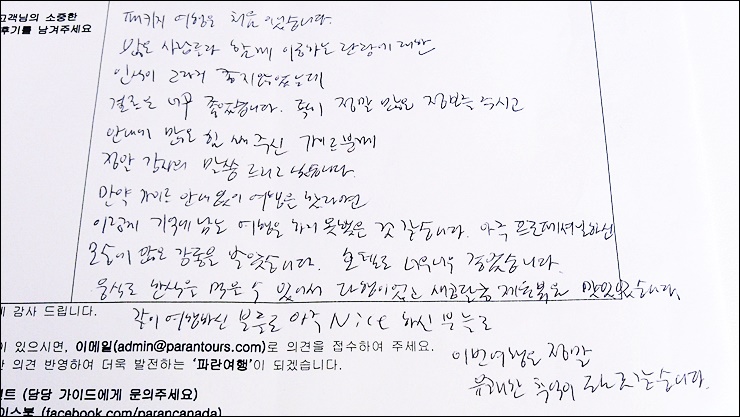 고객님의 소중한
후기를 남겨주세요
패키지 여행은 처음 이었습니다.
많은 사람들과 함께 이동하는 관광에 대한
인식이 그다지 좋지 않았는데
결론은 너무 좋았습니다. 특히 정말 많은 정보를 주시고
안내에 많은 힘 써 주신 가이드분께
정말 감사의 말씀 드리고 싶습니다.
만약 가이드 안내 없이 여행을 왔다면
이렇게 기억에 남는 여행을 하지 못했을 것 같습니다. 아주 프로페셔널하신
모습에 많은 감동을 받았습니다. 호텔도 너무너무 좋았습니다.
음식도 한식을 먹을 수 있어서 다행이었고 제육볶음 맛있었습니다.
감사 드립니다.
같이 여행하신 분들도 아주 Nice 하신 분들로
이 있으시면, 이메일(admin@parantours.com)로 의견을 접수하여 주세요.
한 의견 반영하여 더욱 발전하는 '파란여행'이 되겠습니다.
이번여행은 정말
유쾌한 추억이 될 것 같습니다.
트 (담당 가이드에게 문의주세요)
이스북 (facebook.com/parancanada)